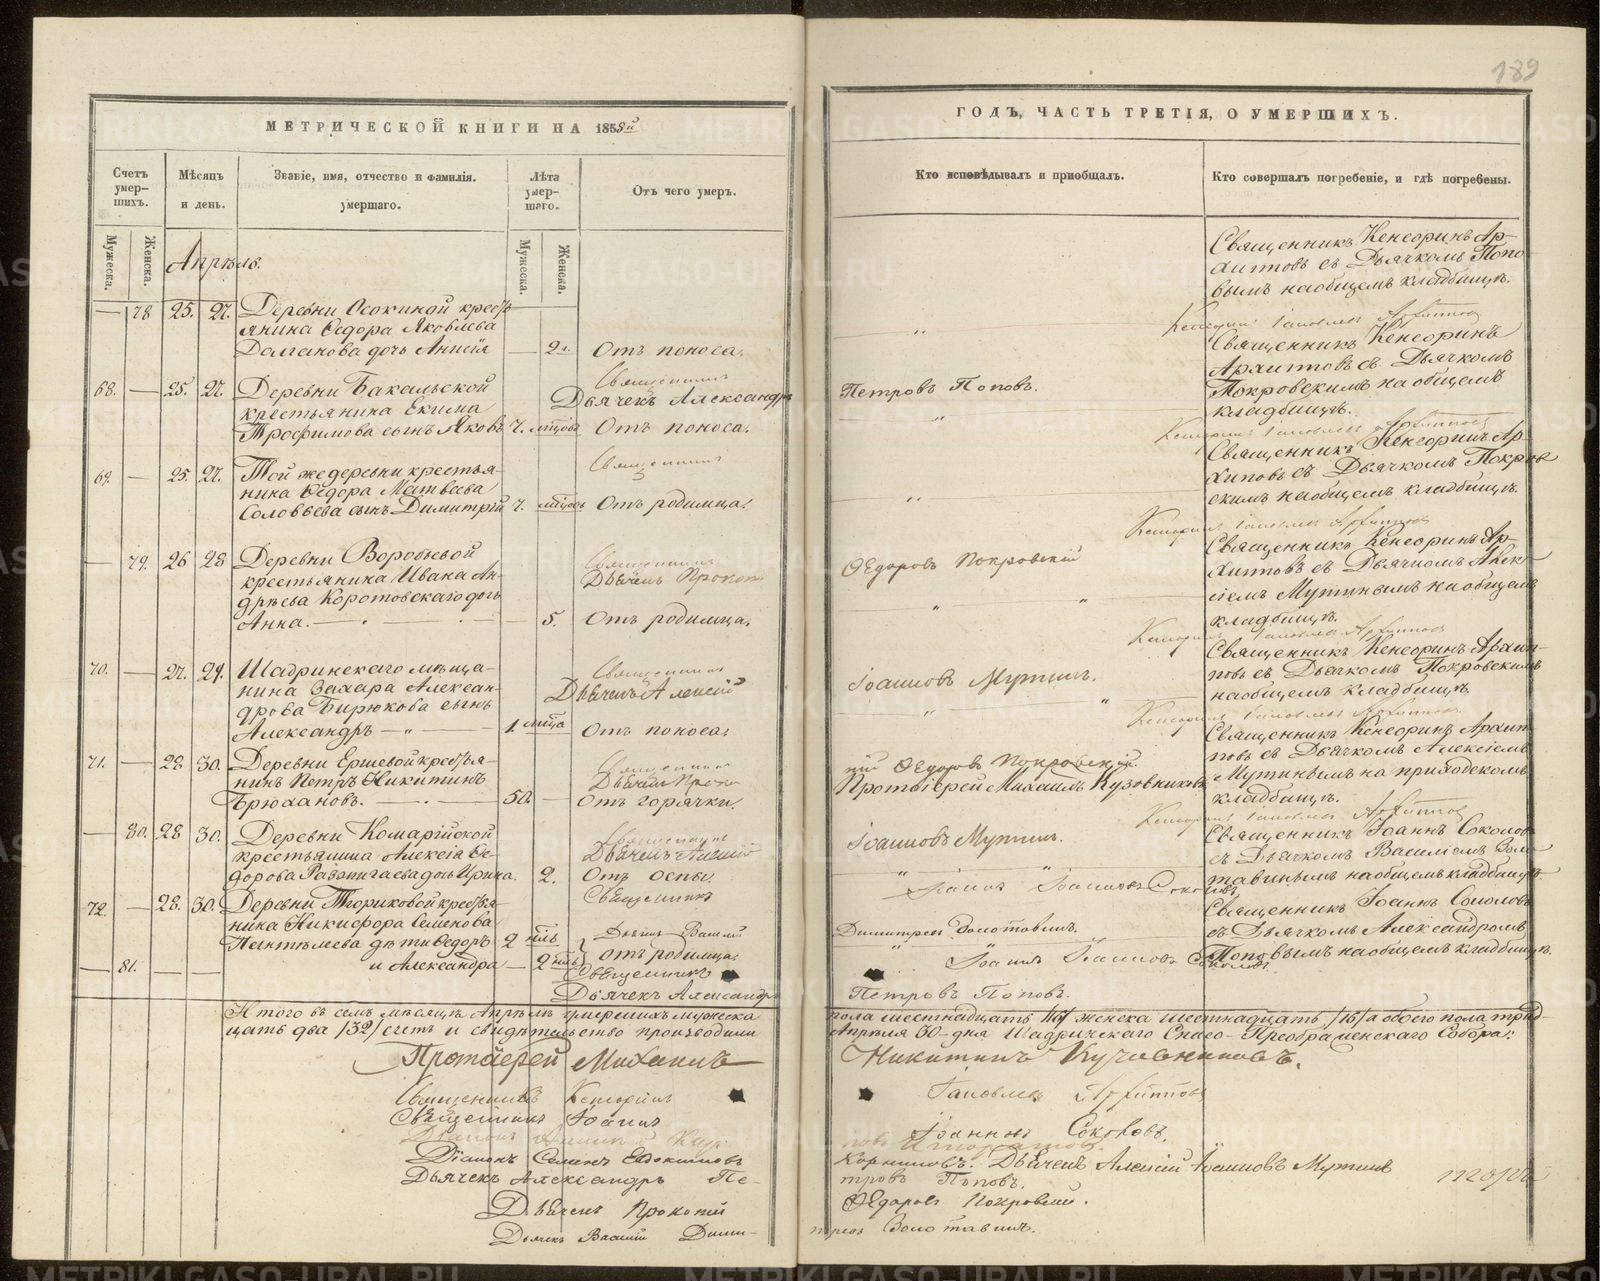 189
МЕТРИЧЕСКОЙ КНИГИ НА 1858й
ГОДЪ, ЧАСТЬ ТРЕТІЯ, О УМЕРШИХЪ.
Счетъ умерших.
Мѣсяцъ и день.
Званіе, имя, отчество и фамилія.
умершаго.
Лѣта умершаго.
Отъ чего умеръ.
Кто исповѣдывалъ и пріобщалъ.
Кто совершалъ погребеніе, и гдѣ погребены.
Мужеска.
Женска.
Мужеска.
Женска.
Апрѣль.
78 25. 27. Деревни Осокиной кресть
янина Ѳедора Яковлева
Долганова дочь Анисія — 2. Отъ поноса.
Священникъ Кенсоринъ Ар-
хиповъ съ Дьячкомъ Попо
вымъ на общемъ кладбищѣ.
68. — 25. 27. Деревни Бакальской
крестьянина Екима
Трофимова сынъ Яковъ 7. мѣсцовъ Отъ поноса.
Священникъ
Дьячекъ Александръ
Петровъ Поповъ.
Священникъ Кенсоринъ
Архиповъ съ Дьячкомъ
Покровскимъ на общемъ
кладбищѣ.
69. — 25. 27. Той же деревни крестья-
нина Ѳедора Матвѣева
Соловьева сынъ Димитрій 7. мѣсцовъ Отъ родимца.
Священникъ
Священникъ Кенсоринъ Ар-
хиповъ съ Дьячкомъ Покров
скимъ на общемъ кладбищѣ.
— 79. 26 28 Деревни Воробьевой
крестьянина Ивана Ан-
дрѣева Коротовскаго дочь
Анна. — 5. Отъ родимца.
Священникъ
Дьячекъ Прокопій
Ѳедоровъ Покровскій
Священникъ Кенсоринъ Ар-
хиповъ съ Дьячкомъ Алек-
сіемъ Мутинымъ на общемъ
кладбищѣ.
70. — 27. 29. Шадринскаго мѣща-
нина Захара Алексан-
дрова Бирюкова сынъ
Александръ — 1. мѣсца Отъ поноса.
Священникъ
Дьячекъ Алексій
Іоанновъ Мутинъ.
Священникъ Кенсоринъ Архип-
повъ съ Дьячкомъ Покровскимъ
на общемъ кладбищѣ
71. — 28 30. Деревни Ершевой крестья-
нинъ Петръ Никитинъ
Брюхановъ. — 50. — Отъ горячки.
Священникъ
Дьячекъ Проко
пій Ѳедоровъ Покровскій.
Протоіерей Михаилъ Кузовниковъ
Священникъ Кенсоринъ Архип-
повъ съ Дьячкомъ Алексіемъ
Мутинымъ на приходскомъ
кладбищѣ.
— 80. 28 30. Деревни Комарійской
крестьянина Алексіа Ѳе-
дорова дочь Ирина. 2. Отъ оспы.
Священникъ
Дьячекъ Алексій
Іоанновъ Мутинъ.
Священникъ Іоаннъ Соколовъ
съ Дьячкомъ Василіемъ Золо
тавинымъ на общемъ кладбищѣ.
72. — 28. 30. Деревни Ториковой крестья-
нина Никифора Семенова
Пантелѣева дѣти Ѳедоръ 2 нѣдѣль
81. и Александра — 2 нѣдѣль Отъ родимца.
Священникъ
Іоаннъ Іоанновъ Соколовъ
Дьячекъ Василій
Димитріевъ Золотавинъ.
Священникъ
Іоаннъ Іоанновъ Соколовъ
Дьячекъ Александръ
Петровъ Поповъ.
Священникъ Іоаннъ Соколовъ
съ Дьячкомъ Александромъ
Поповымъ на общемъ кладбищѣ.
Итого въ семъ мѣсяцѣ Апрѣлѣ умершихъ мужеска пола шестнадцать /16/ женска шестнадцать /16/ а обоего пола трид
цать два /32/ счетъ и свидѣтельство производили Апрѣля 30 дня Шадринскаго Спасо-Преображенскаго Собора:
Протоіерей Михаилъ Никитинъ Кузовниковъ.
Священникъ Кенсоринъ Іаковлевъ Архиповъ
Священникъ Іоаннъ Іоанновъ Соколовъ.
Діаконъ Семенъ Евдокимовъ
Корниловъ. Дьячекъ Алексій Іоанновъ Мутинъ
Дьячекъ Александръ Пе-
тровъ Поповъ.
Дьячекъ Прокопій
Ѳедоровъ Покровскій.
Дьячекъ Василій Дими-
тріевъ Золотавинъ.
METRIKI.GASO-URAL.RU